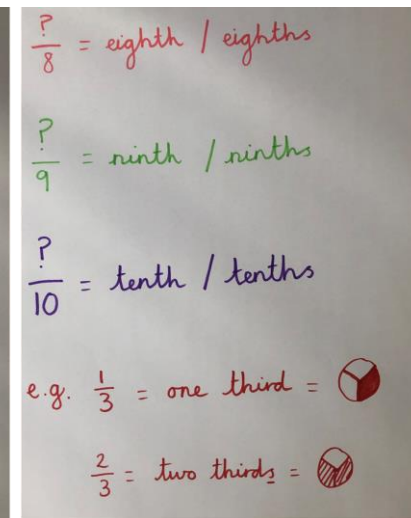 ?/8 = eighth / eighths
?/9 = ninth / ninths
?/10 = tenth / tenths
e.g. 1/3 = one third =
2/3 = two thirds =